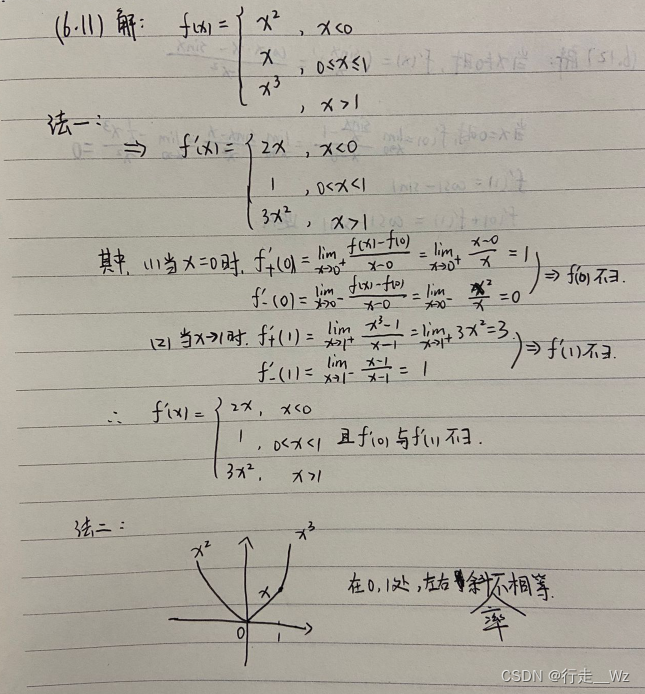 (6.11) 解: f(x) = { x² , x<0
x , 0≤x≤1
x³ , x>1
法一:
⇒ f'(x) = { 2x , x<0
1 , 0<x<1
3x² , x>1
其中, (1) 当 x=0时, f'₊(0) = lim x→0⁺ (f(x)-f(0))/(x-0) = lim x→0⁺ (x-0)/x = 1
f'₋(0) = lim x→0⁻ (f(x)-f(0))/(x-0) = lim x→0⁻ x²/x = 0 ⇒ f'(0)不∃.
(2) 当x→1时. f'₊(1) = lim x→1⁺ (x³-1)/(x-1) = lim x→1⁺ 3x² = 3.
f'₋(1) = lim x→1⁻ (x-1)/(x-1) = 1 ⇒ f'(1)不∃.
∴ f'(x) = { 2x, x<0
1 , 0<x<1 且f'(0)与f'(1)不∃.
3x², x>1
法二:
x² x x³
0 1
在0,1处,左右斜率不相等.
CSDN @行走__Wz